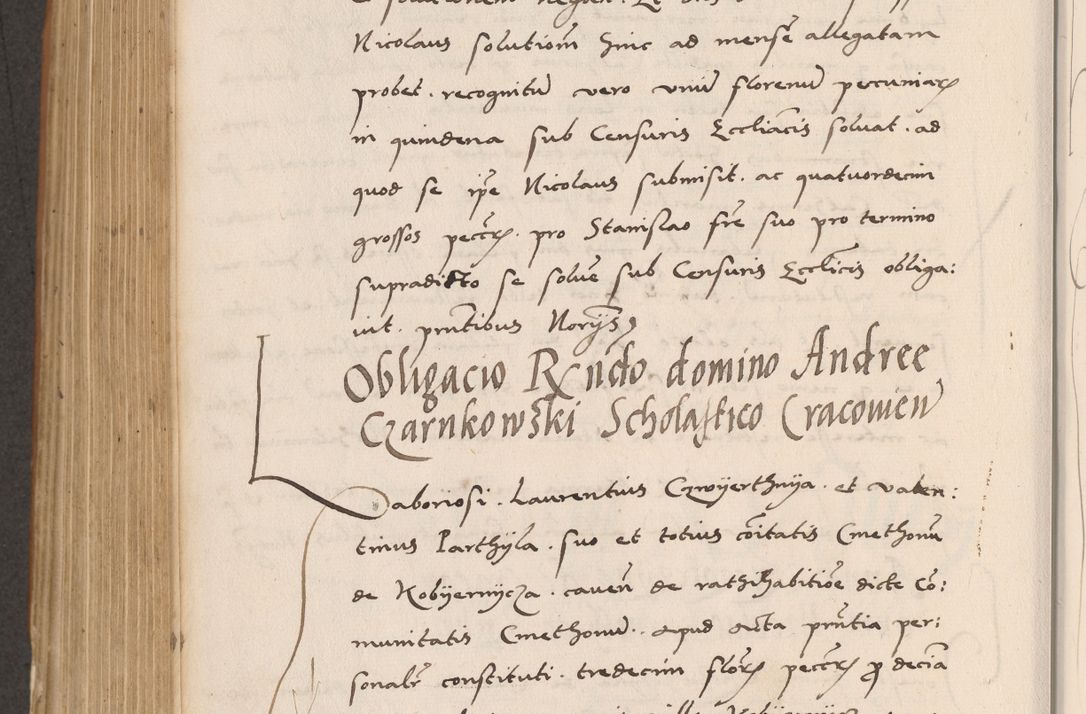 Nicolaus solutiom̃ hinc ad mensẽ allegatam
probet. recognitũ vero vnũ florenũ pecuniarꝝ
in quindena sub Censuris Eccliãcis soluat. ad
quod se ip̃e Nicolaus submisit. ac quatuordecim
grossos pecc̃rꝝ. pro Stanislao fr̃e suo pro termino
supradicto se soluẽ sub Censuris Ecclĩcis obliga:
uit. pñtibus Norijs
Obligacio Rx̃ndo domino Andree
Czarnkowski Scholastico Cracowieñ
Laboriosi. Laurentius Czwyerthnya. et valen:
tinus Parthyla. suo et totius cõitatis Cmethonũ
de Kobyernycza. caueñ de rathihabitiõe dicte Cõ:
munitatis Cmethonũ. apud acta pñtia per:
sonalr̃ constituti. tredecim flor̃ꝝ pecc̃rꝝ ꝓ decĩa